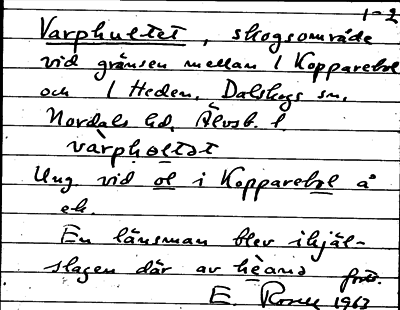 1-2
Varphultet, skogsområde
vid gränsen mellan 1 Kopparebol
och 1 Heden, Dalskogs sn,
Nordals hd, Älvsb. l.
vàrphəltət
Ung. vid ol i Kopparebol å
ek.
En länsman blev ihjäl-
slagen där av hèanə forts.
E. 1963